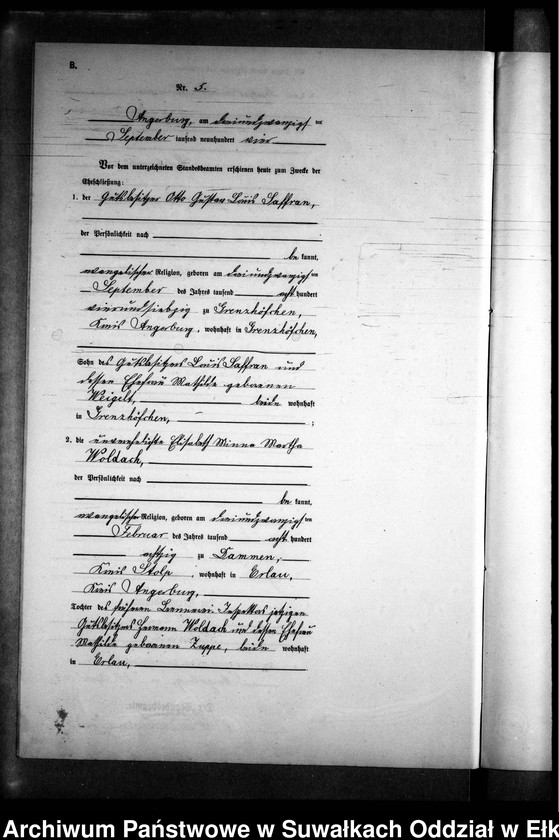 B.
Nr. 5.
Angerburg, am dreiundzwanzigsten
September tausend neunhundert vier
Vor dem unterzeichneten Standesbeamten erschienen heute zum Zwecke der
Eheschließung:
1. der Gutsbesitzer Otto Gustav Louis Saffran,
der Persönlichkeit nach
bekannt,
evangelischer Religion, geboren am dreiundzwanzigsten
September des Jahres tausend acht hundert
vierundsiebzig zu Grenzhöfchen,
Kreis Angerburg, wohnhaft in Grenzhöfchen,
Sohn des Gutsbesitzers Louis Saffran und
dessen Ehefrau Mathilde geborenen
Weigelt, beide wohnhaft
in Grenzhöfchen, ;
2. die unverehelichte Elisabeth Minna Martha
Woldach,
der Persönlichkeit nach
bekannt,
evangelischer Religion, geboren am dreiundzwanzigsten
Februar des Jahres tausend acht hundert
achtzig zu Dammen,
Kreis Stolp, wohnhaft in Erlau,
Kreis Angerburg,
Tochter des früheren Inspektors jetzigen
Gutsbesitzers Hermann Woldach und dessen Ehefrau
Mathilde geborenen Zuppe, beide wohnhaft
in Erlau,
Archiwum Państwowe w Suwałkach Oddział w Ełk